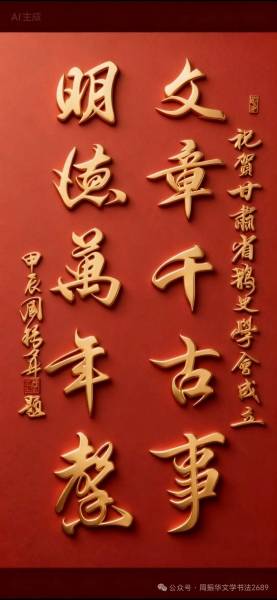 AI生成
祝賀甘肅省史學會成立
文章千古事
明德萬年馨
甲辰周振華題
公众号 · 周振华文学书法2689